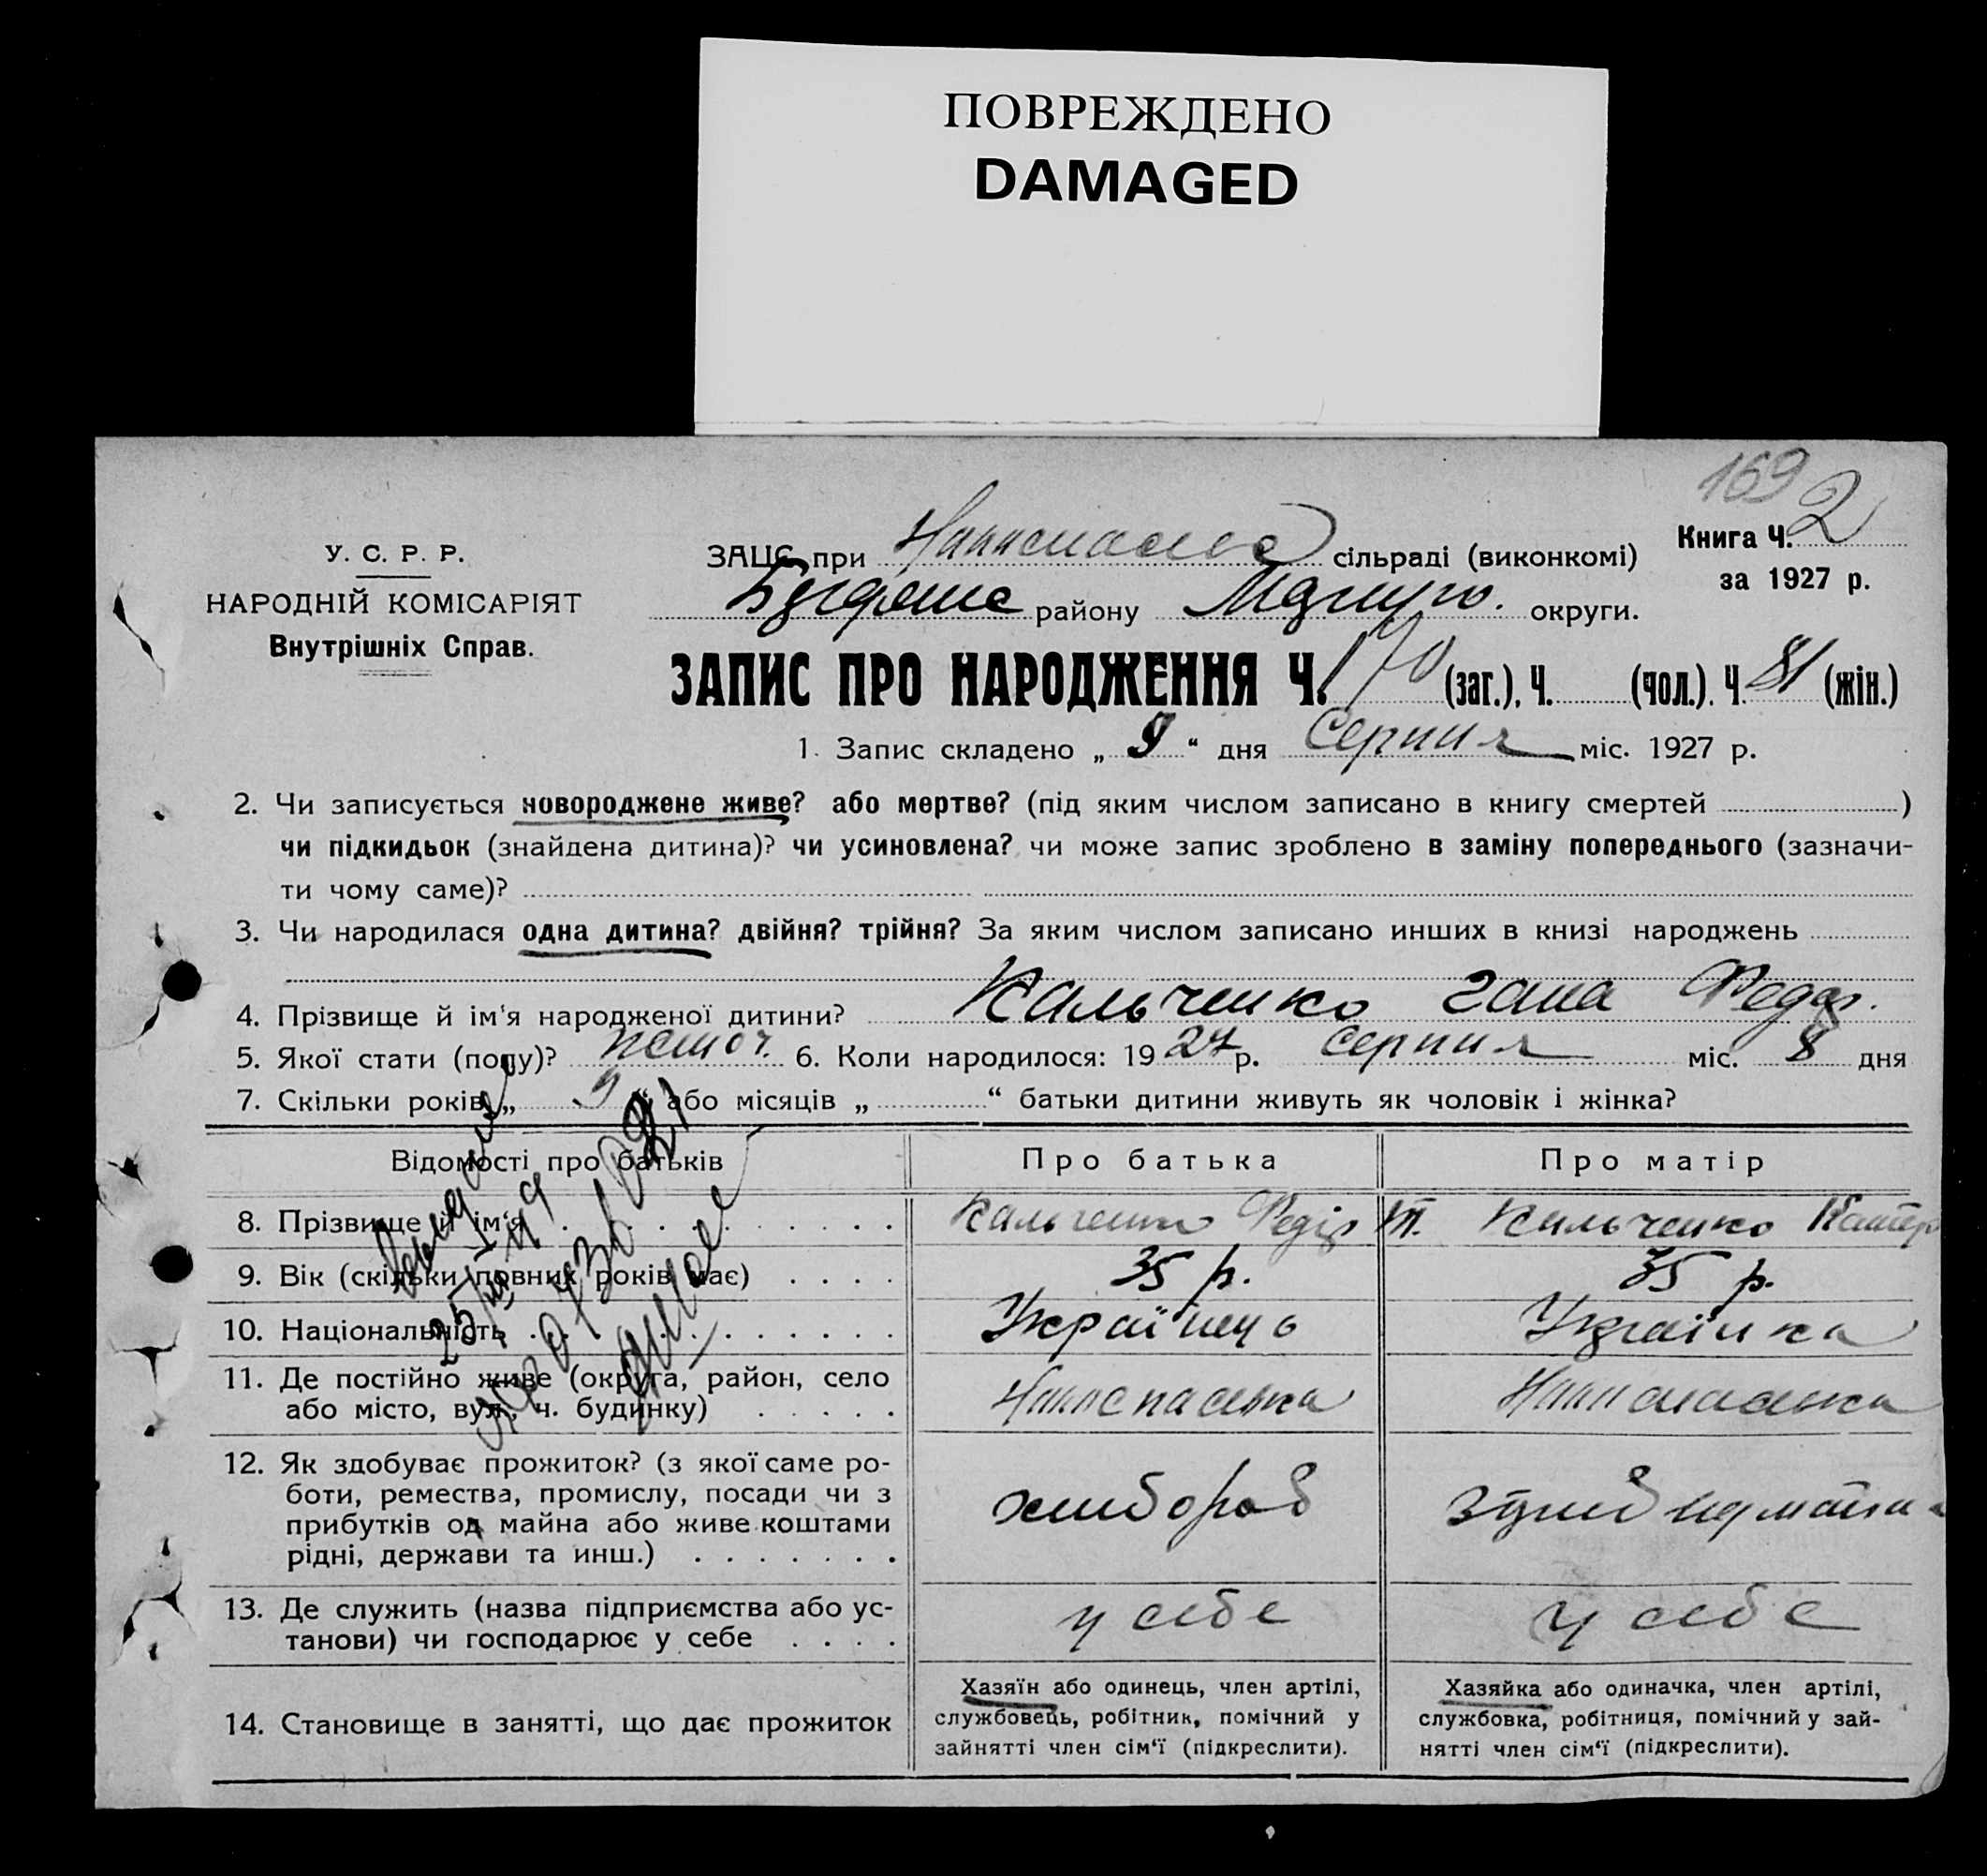 ПОВРЕЖДЕНО
DAMAGED
169
У. С. Р. Р.
НАРОДНІЙ КОМІСАРІЯТ
Внутрішніх Справ.
ЗАЦС при сільраді (виконкомі)
Книга Ч. 2
за 1927 р.
району округи.
ЗАПИС ПРО НАРОДЖЕННЯ Ч. 170 (заг.), Ч. (чол.). Ч. 81 (жін.)
1. Запис складено „ 9 “ дня Серпня міс. 1927 р.
2. Чи записується новороджене живе? або мертве? (під яким числом записано в книгу смертей )
чи підкидьок (знайдена дитина)? чи усиновлена? чи може запис зроблено в заміну попереднього (зазначи-
ти чому саме)?
3. Чи народилася одна дитина? двійня? трійня? За яким числом записано инших в книзі народжень
4. Прізвище й ім‘я народженої дитини? Кальченко Гана Федор.
5. Якої стати (полу)? 6. Коли народилося: 1927 р. Серпня міс. 8 дня
7. Скільки років „ 9 “ або місяців „ “ батьки дитини живуть як чоловік і жінка?
Відомості про батьків Про батька Про матір
8. Прізвище й ім‘я Кальченко Федір Т. Кальченко Катер
9. Вік (скільки повних років має) 35 р. 35 р.
10. Національність Українець Українка
11. Де постійно живе (округа, район, село
або місто, вул., ч. будинку)
12. Як здобуває прожиток? (з якої саме ро-
боти, ремества, промислу, посади чи з
прибутків од майна або живе коштами
рідні, держави та инш.)
хлибороб
13. Де служить (назва підприємства або ус-
танови) чи господарює у себе
у себе у себе
14. Становище в занятті, що дає прожиток
Хазяїн або одинець, член артілі,
службовець, робітник, помічний у
зайнятті член сім‘ї (підкреслити).
Хазяйка або одиначка, член артілі,
службовка, робітниця, помічний у зай-
нятті член сім‘ї (підкреслити).